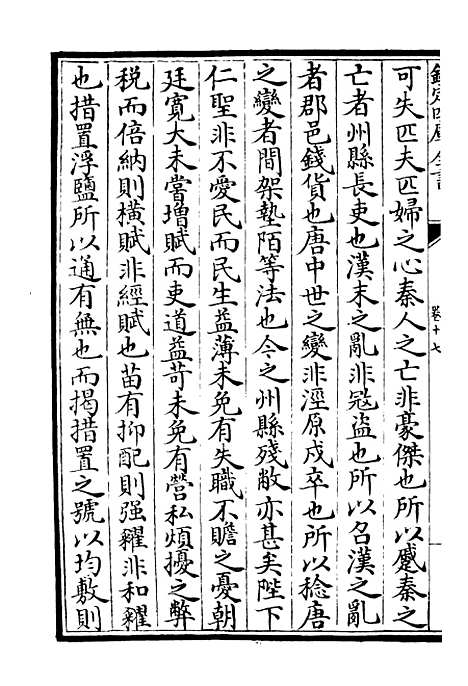 欽定四庫全書
卷十七
可失匹夫匹婦之心秦人之亡非豪傑也所以蹙秦之
亡者州縣長吏也漢末之亂非冦盜也所以召漢之亂
者郡邑錢貨也唐中世之變非涇原戍卒也所以稔唐
之變者間架墊陌等法也今之州縣殘敝亦甚矣陛下
仁聖非不愛民而民生益薄未免有失職不贍之憂朝
廷寛大未嘗增賦而吏道益苛未免有營私煩擾之弊
税而倍納則橫賦非經賦也苗有抑配則强糴非和糴
也措置浮鹽所以通有無也而揭措置之號以均敷則